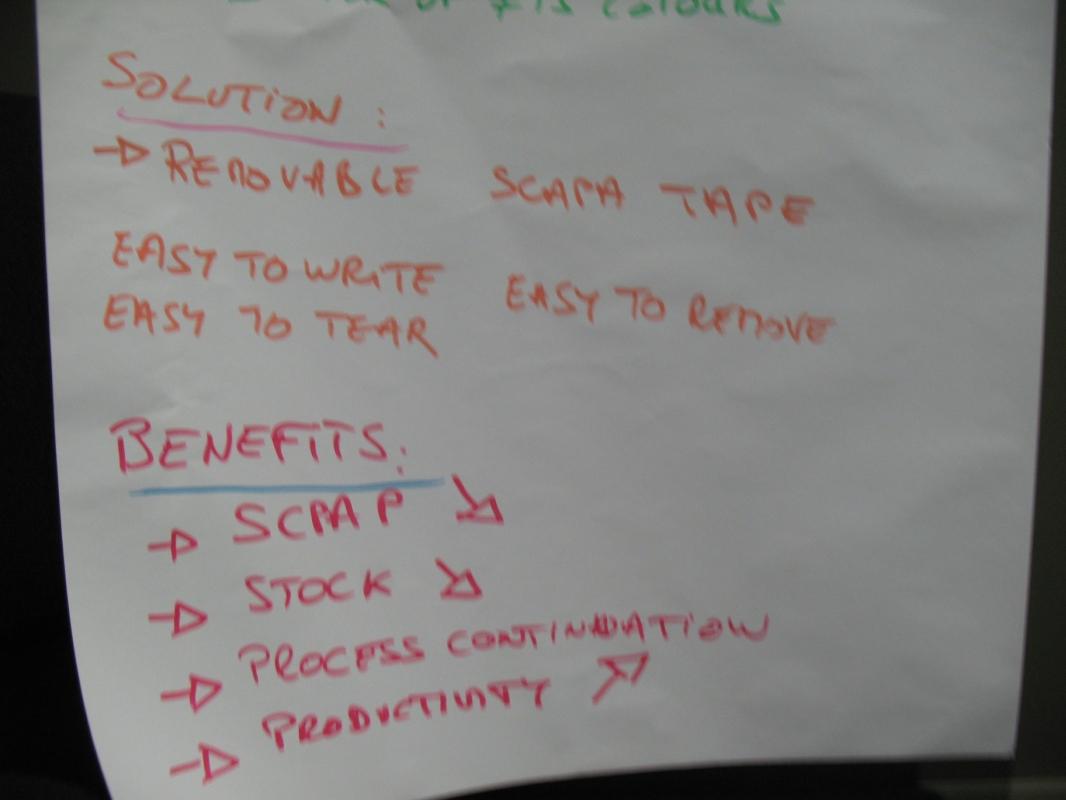 OF 7/5 COLOURS
SOLUTION :
→ REMOVABLE SCAPA TAPE
EASY TO WRITE EASY TO REMOVE
EASY TO TEAR
BENEFITS:
→ SCRAP ↘
→ STOCK ↘
→ PROCESS CONTINUATION
→ PRODUCTIVITY ↗